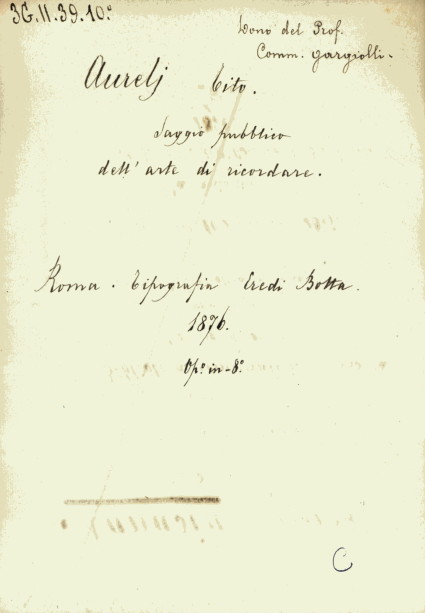 3G.11.39.10.°
Dono del Prof.
Comm. Gargiolli.
Aurelj Tito.
Saggio pubblico
dell'arte di ricordare.
Roma. Tipografia Eredi Botta.
1876.
Op.° in-8.°
C